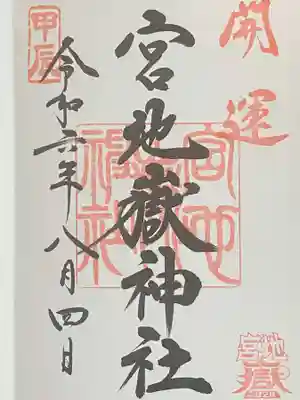 開運
宮地嶽神社
宮地
嶽神
社
令和六年八月四日
甲辰